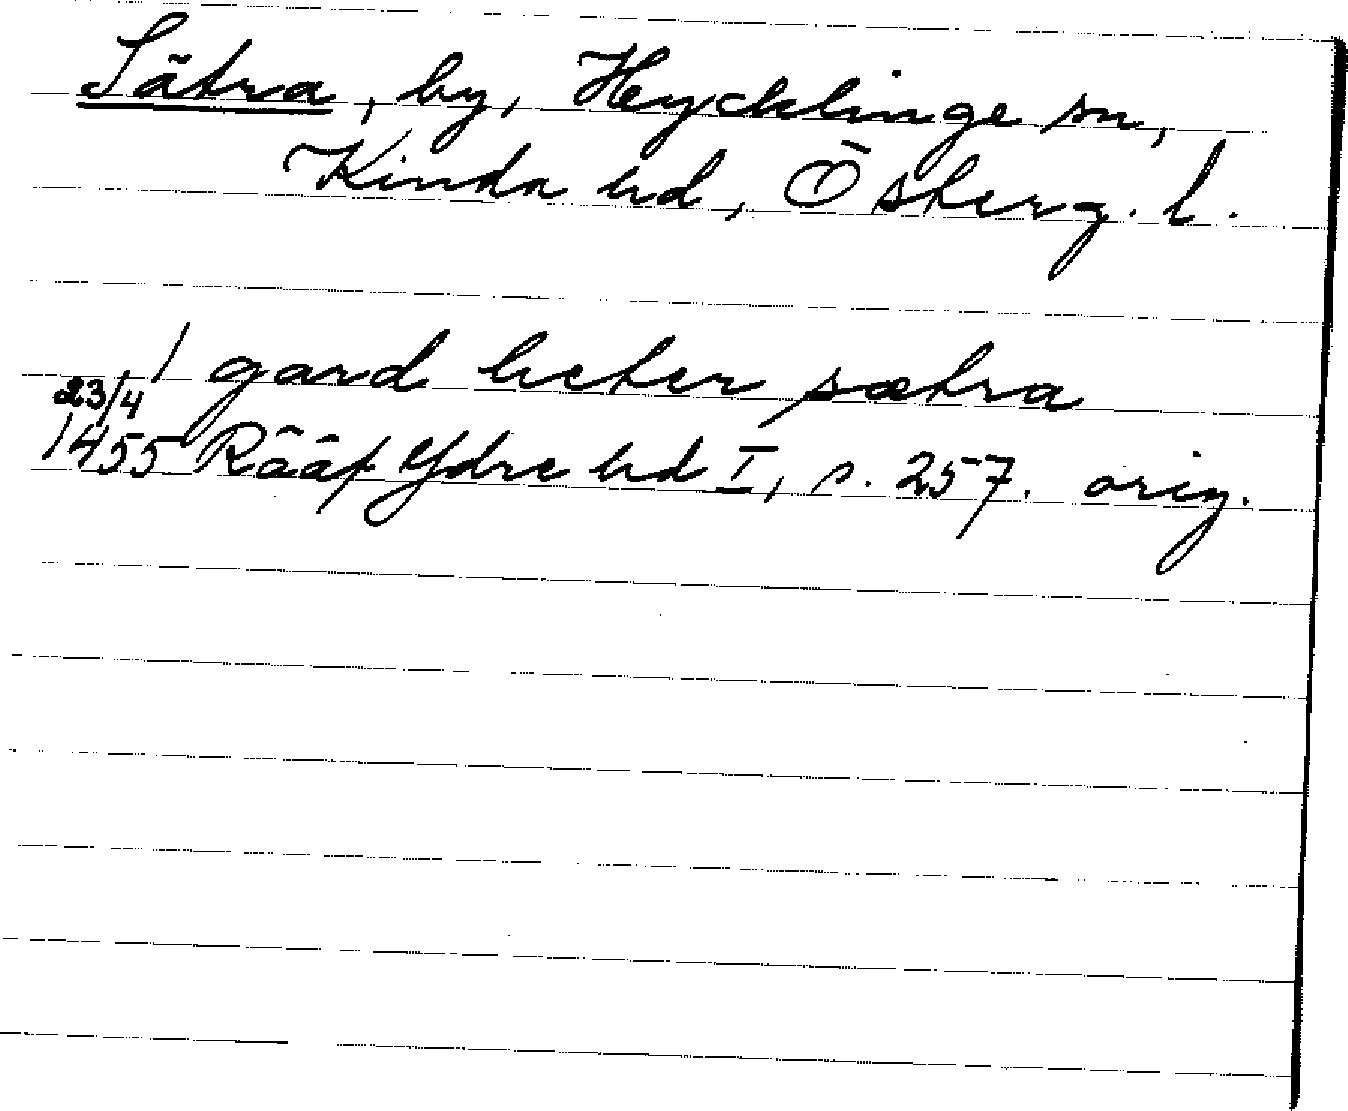 Sätra, by, Heycklinge sn,
Kinda hd, Österg. l.
1 gard heter sætra
23/4
1455 Rääf Ydre hd I, s. 257. orig.